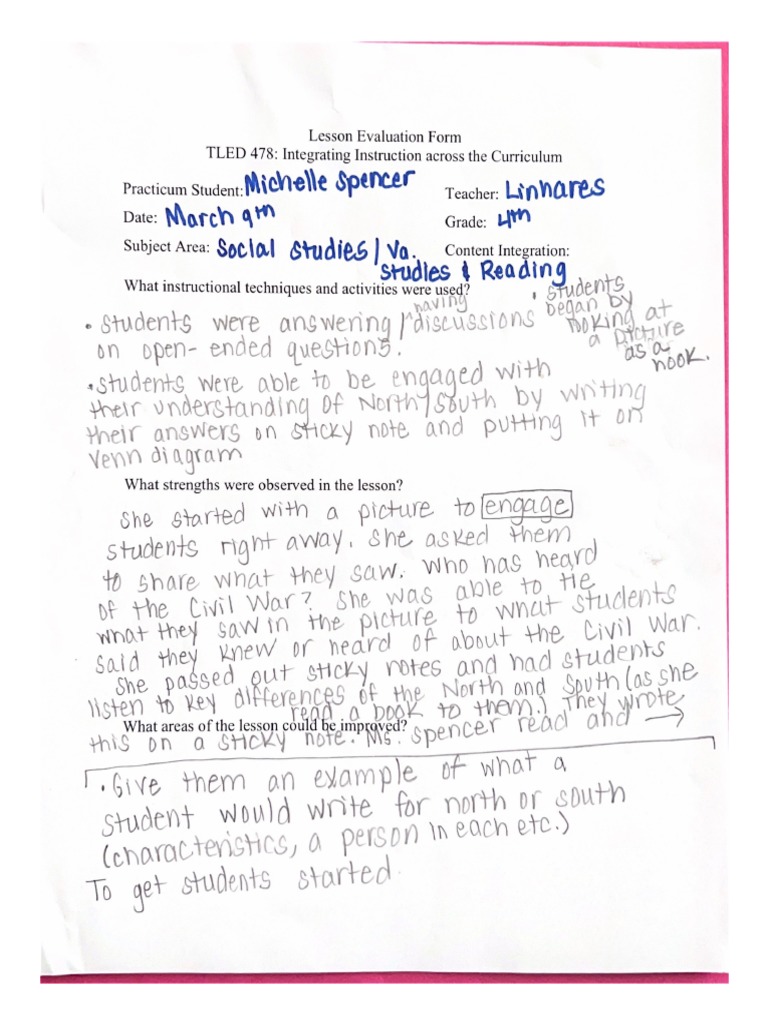 Lesson Evaluation Form
TLED 478: Integrating Instruction across the Curriculum
Practicum Student: Michelle Spencer
Teacher: Linhares
Date: March 9th
Grade: 4th
Subject Area: Social Studies / Va.
Content Integration:
Studies & Reading
What instructional techniques and activities were used?
• Students were answering / having discussions
on open-ended questions.
• students
began by
looking at
a picture
as a
hook.
• Students were able to be engaged with
their understanding of North/South by writing
their answers on sticky note and putting it on
venn diagram
What strengths were observed in the lesson?
She started with a picture to engage
students right away. She asked them
to share what they saw. Who has heard
of the Civil War? She was able to tie
what they saw in the picture to what students
said they knew or heard of about the Civil War.
She passed out sticky notes and had students
listen to key differences of the North and South (as she
read a book to them.) They wrote
What areas of the lesson could be improved?
this on a sticky note. Ms. Spencer read and →
• Give them an example of what a
student would write for north or south
(characteristics, a person in each etc.)
To get students started.